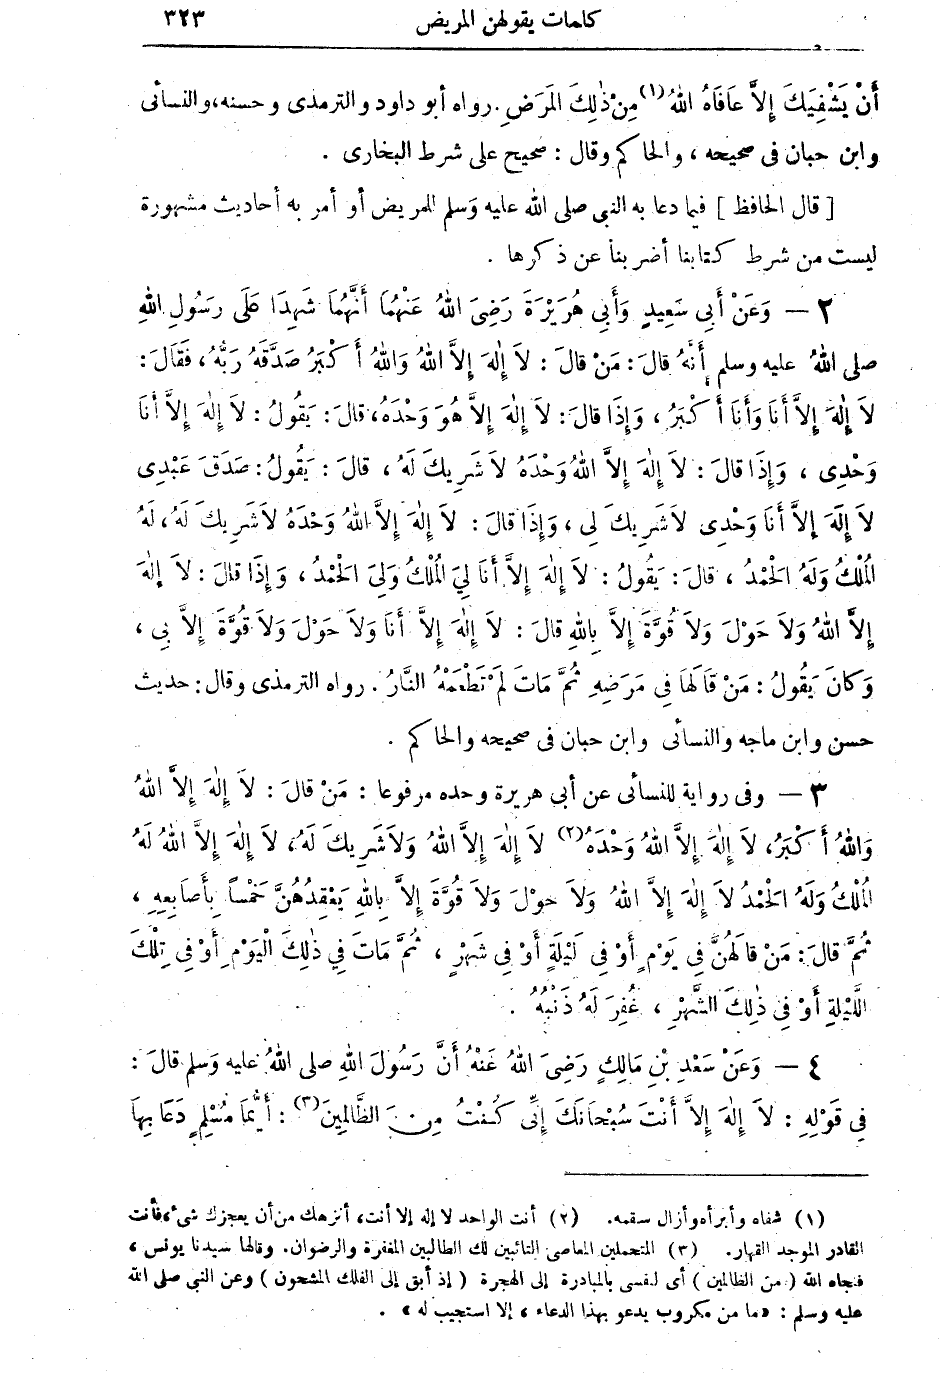 كلمات يقولهن المريض ٣٢٣
أَنْ يَشْفِيَكَ إِلاَّ عَافَاهُ اللهُ(١) مِنْ ذٰلِكَ المَرَضِ. رواه أبو داود والترمذى وحسنه، والنسأئى
وابن حبان فى صحيحه، والحاكم وقال: صحيح على شرط البخارى.
[قال الحافظ] فيما دعا به النبى صلى الله عليه وَسلم للمريض أو أمر به أحاديث مشهورة
ليست من شرط كتابنا أضربنا عن ذكرها.
٢ — وَعَنْ أَبِي سَعِيدٍ وَأَبِي هُرَيْرَةَ رَضِىَ اللهُ عَنْهُمَا أَنَّهُمَا شَهِدَا عَلَى رَسُولِ اللهِ
صلى اللهُ عليه وسلم أَنَّهُ قالَ: مَنْ قالَ: لاَ إِلٰهَ إِلاَّ اللهُ وَاللهُ أَكْبَرُ صَدَّقَهُ رَبُّهُ، فَقَالَ:
لاَ إِلٰهَ إِلاَّ أَنَا وَأَنَا أَكْبَرُ، وَإِذَا قالَ: لاَ إِلٰهَ إِلاَّ هُوَ وَحْدَهُ، قالَ: يَقُولُ: لاَ إِلٰهَ إِلاَّ أَنَا
وَحْدِى، وَإِذَا قالَ: لاَ إِلٰهَ إِلاَّ اللهُ وَحْدَهُ لاَ شَرِيكَ لَهُ، قالَ: يَقُولُ: صَدَقَ عَبْدِى
لاَ إِلٰهَ إِلاَّ أَنَا وَحْدِى لاَشَرِيكَ لِى، وَإِذَا قالَ: لاَ إِلٰهَ إِلاَّ اللهُ وَحْدَهُ لاَشَرِيكَ لَهُ، لَهُ
المُلْكُ وَلَهُ الحَمْدُ، قالَ: يَقُولُ: لاَ إِلٰهَ إِلاَّ أَنَا لِيَ المُلْكُ وَلِيَ الحَمْدُ، وَإِذَا قالَ: لاَ إِلٰهَ
إِلاَّ اللهُ وَلاَ حَوْلَ وَلاَ قُوَّةَ إِلاَّ بِاللهِ قالَ: لاَ إِلٰهَ إِلاَّ أَنَا وَلاَ حَوْلَ وَلاَ قُوَّةَ إِلاَّ بِي،
وَكانَ يَقُولُ: مَنْ قَالَهَا فِي مَرَضِهِ ثُمَّ مَاتَ لَمْ تَطْعَمْهُ النَّارُ. رواه الترمذى وقال: حديث
حسن وابن ماجه والنسأئى وابن حبان فى صحيحه والحاكم.
٣ — وفى رواية للنسأئى عن أبى هريرة وحده مرفوعا: مَنْ قالَ: لاَ إِلٰهَ إِلاَّ اللهُ
وَاللهُ أَكْبَرُ، لاَ إِلٰهَ إِلاَّ اللهُ وَحْدَهُ(٢) لاَ إِلٰهَ إِلاَّ اللهُ وَلاَشَرِيكَ لَهُ، لاَ إِلٰهَ إِلاَّ اللهُ لَهُ
المُلْكُ وَلَهُ الحَمْدُ لاَ إِلٰهَ إِلاَّ اللهُ وَلاَ حَوْلَ وَلاَ قُوَّةَ إِلاَّ بِاللهِ يَعْقِدُهُنَّ خَمْساً بِأَصَابِعِهِ،
ثُمَّ قالَ: مَنْ قالَهُنَّ فِي يَوْمٍ أَوْ فِي لَيْلَةٍ أَوْ فِي شَهْرٍ، ثُمَّ مَاتَ فِي ذٰلِكَ الْيَوْمِ أَوْ فِي تِلْكَ
اللَّيْلَةِ أَوْ فِي ذٰلِكَ الشَّهْرِ، غُفِرَ لَهُ ذَنْبُهُ.
٤ — وَعَنْ سَعْدِ بْنِ مَالِكٍ رَضِىَ اللهُ عَنْهُ أَنَّ رَسُولَ اللهِ صلى اللهُ عليه وَسلم قالَ:
فِي قَوْلِهِ: لاَ إِلٰهَ إِلاَّ أَنْتَ سُبْحَانَكَ إِنِّى كُنْتُ مِنَ الظَّالِمِينَ(٣): أَيُّمَا مُسْلِمٍ دَعَا بِهَا
(١) شفاه وأبرأه وأزال سقمه. (٢) أنت الواحد لا إله إلا أنت، أنزهك من أن يعجزك شىء، فأنت
القادر الموجد القهار. (٣) المتحملين المعاصى التائبين لك الطالبين المغفرة والرضوان. وقالها سيدنا يونس،
فنجاه الله (من الظالمين) أى لنفسى بالمبادرة إلى الهجرة (إذ أبق إلى الفلك المشحون) وعن النبى صلى الله
عليه وسلم: «ما من مكروب يدعو بهذا الدعاء، إلا استجيب له».